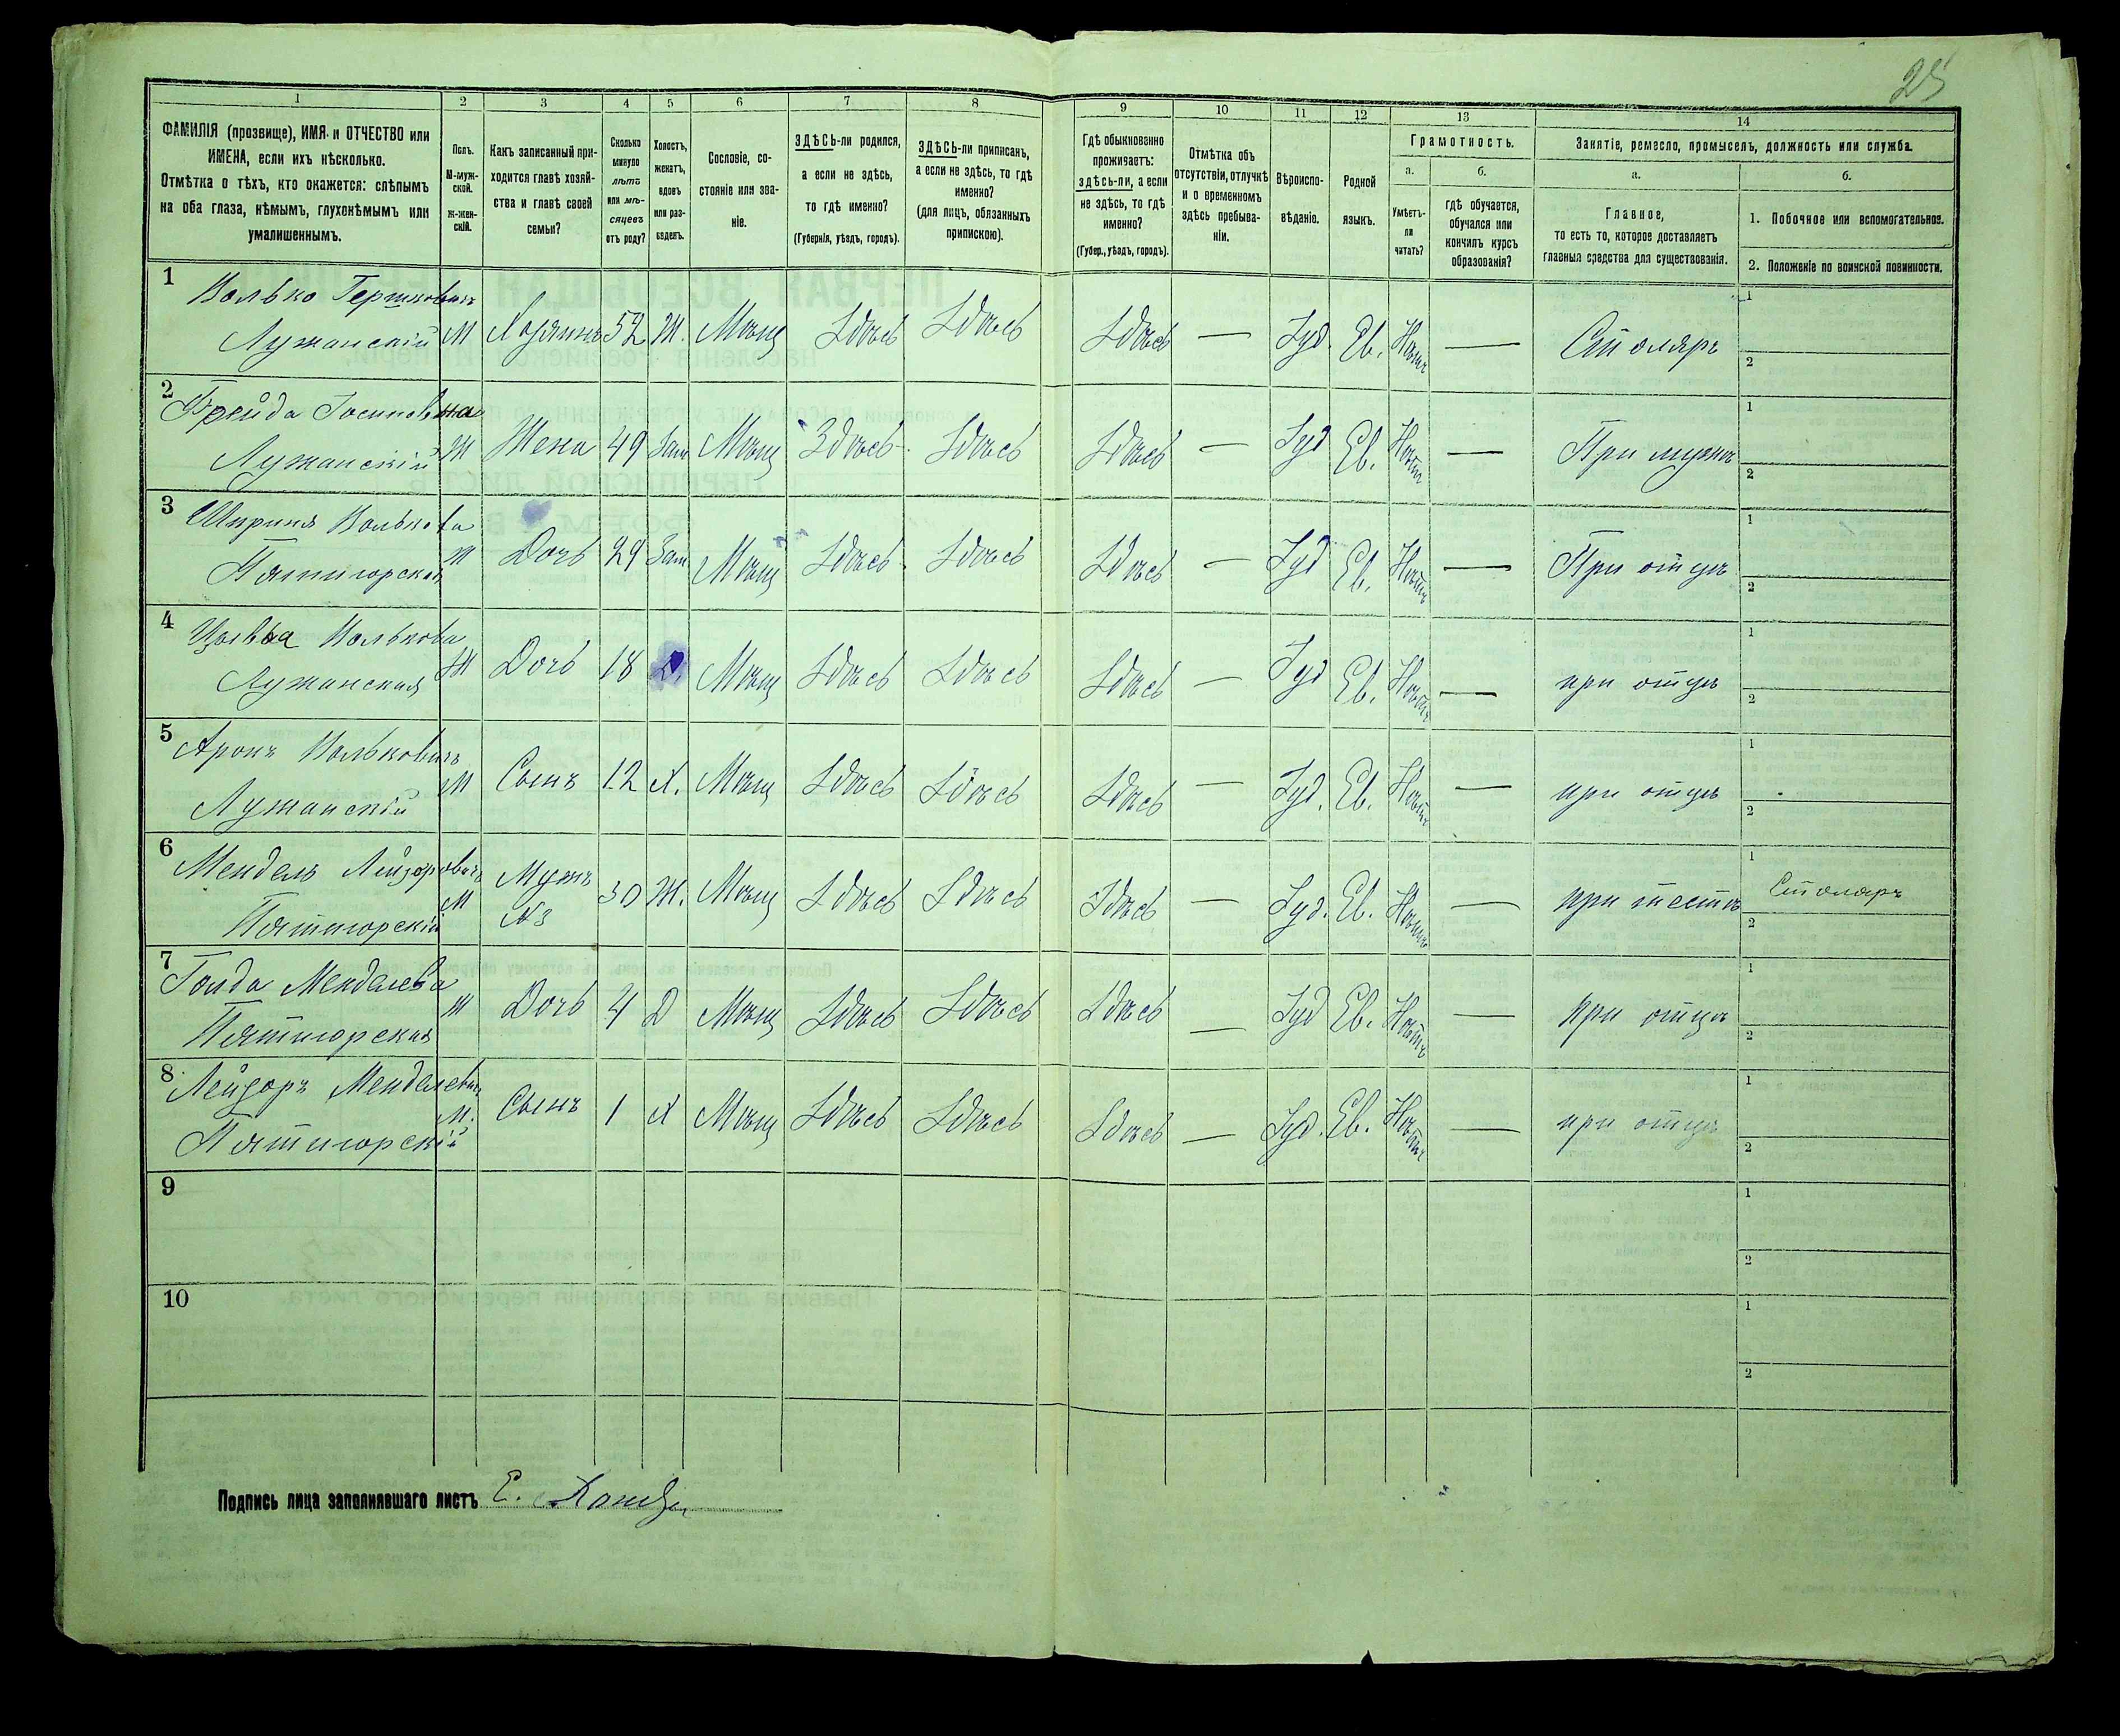 25
1 2 3 4 5 6 7 8 9 10 11 12 13 14
ФАМИЛІЯ (прозвище), ИМЯ и ОТЧЕСТВО или
ИМЕНА, если ихъ нѣсколько.
Отмѣтка о тѣхъ, кто окажется: слѣпымъ
на оба глаза, нѣмымъ, глухонѣмымъ или
умалишеннымъ.
Полъ.
М-муж-
ской.
Ж-жен-
скій.
Какъ записанный при-
ходится главѣ хозяй-
ства и главѣ своей
семьи?
Сколько
минуло
лѣтъ
или мѣ-
сяцевъ
отъ роду?
Холостъ,
женатъ,
вдовъ
или раз-
веденъ.
Сословіе, со-
стояніе или зва-
ніе.
ЗДѢСЬ-ли родился,
а если не здѣсь,
то гдѣ именно?
(Губернія, уѣздъ, городъ).
ЗДѢСЬ-ли приписанъ,
а если не здѣсь, то гдѣ
именно?
(для лицъ, обязанныхъ
припискою).
Гдѣ обыкновенно
проживаетъ:
здѣсь-ли, а если
не здѣсь, то гдѣ
именно?
(Губер., уѣздъ, городъ).
Отмѣтка объ
отсутствіи, отлучкѣ
и о временномъ
здѣсь пребыва-
ніи.
Вѣроиспо-
вѣданіе.
Родной
языкъ.
Грамотность.
а.
Умѣетъ-
ли
читать?
б.
гдѣ обучается,
обучался или
кончилъ курсъ
образованія?
Занятіе, ремесло, промыселъ, должность или служба.
а.
Главное,
то есть то, которое доставляетъ
главныя средства для существованія.
б.
1. Побочное или вспомогательное.
2. Положеніе по воинской повинности.
1 Волько Гершковичъ
Лужанскій М Хозяинъ 52 Ж. Мѣщ Здѣсь Здѣсь Здѣсь — Іуд. Ев. Нѣтъ — Столяръ 1 2
2 Фрейда Іосиповна
Лужанскій Ж Жена 49 Зам Мѣщ Здѣсь Здѣсь Здѣсь — Іуд Ев. Нѣтъ — При мужѣ 1 2
3 Шприня Волькова
Пятигорская Ж Дочь 29 Зам Мѣщ Здѣсь Здѣсь Здѣсь — Іуд Ев. Нѣтъ — При отцѣ 1 2
4 Волькова
Лужанская Ж Дочь 18 Д. Мѣщ Здѣсь Здѣсь Здѣсь — Іуд Ев. Нѣтъ — при отцѣ 1 2
5 Аронъ Вольковичъ
Лужанскій М Сынъ 12 Х. Мѣщ Здѣсь Здѣсь Здѣсь — Іуд. Ев. Нѣтъ — при отцѣ 1 2
6 Мендель Лейзоровичъ
Пятигорскій М Мужъ №3 30 Ж. Мѣщ Здѣсь Здѣсь Здѣсь — Іуд. Ев. Нѣтъ — при тестѣ 1 Столяръ 2
7 Голда Менделева
Пятигорская Ж Дочь 4 Д Мѣщ Здѣсь Здѣсь Здѣсь — Іуд Ев. Нѣтъ — при отцѣ 1 2
8 Лейзоръ Менделевичъ
Пятигорскій М. Сынъ 1 Х Мѣщ Здѣсь Здѣсь Здѣсь — Іуд. Ев. Нѣтъ — при отцѣ 1 2
9 1 2
10 1 2
Подпись лица заполнявшаго листъ Е.